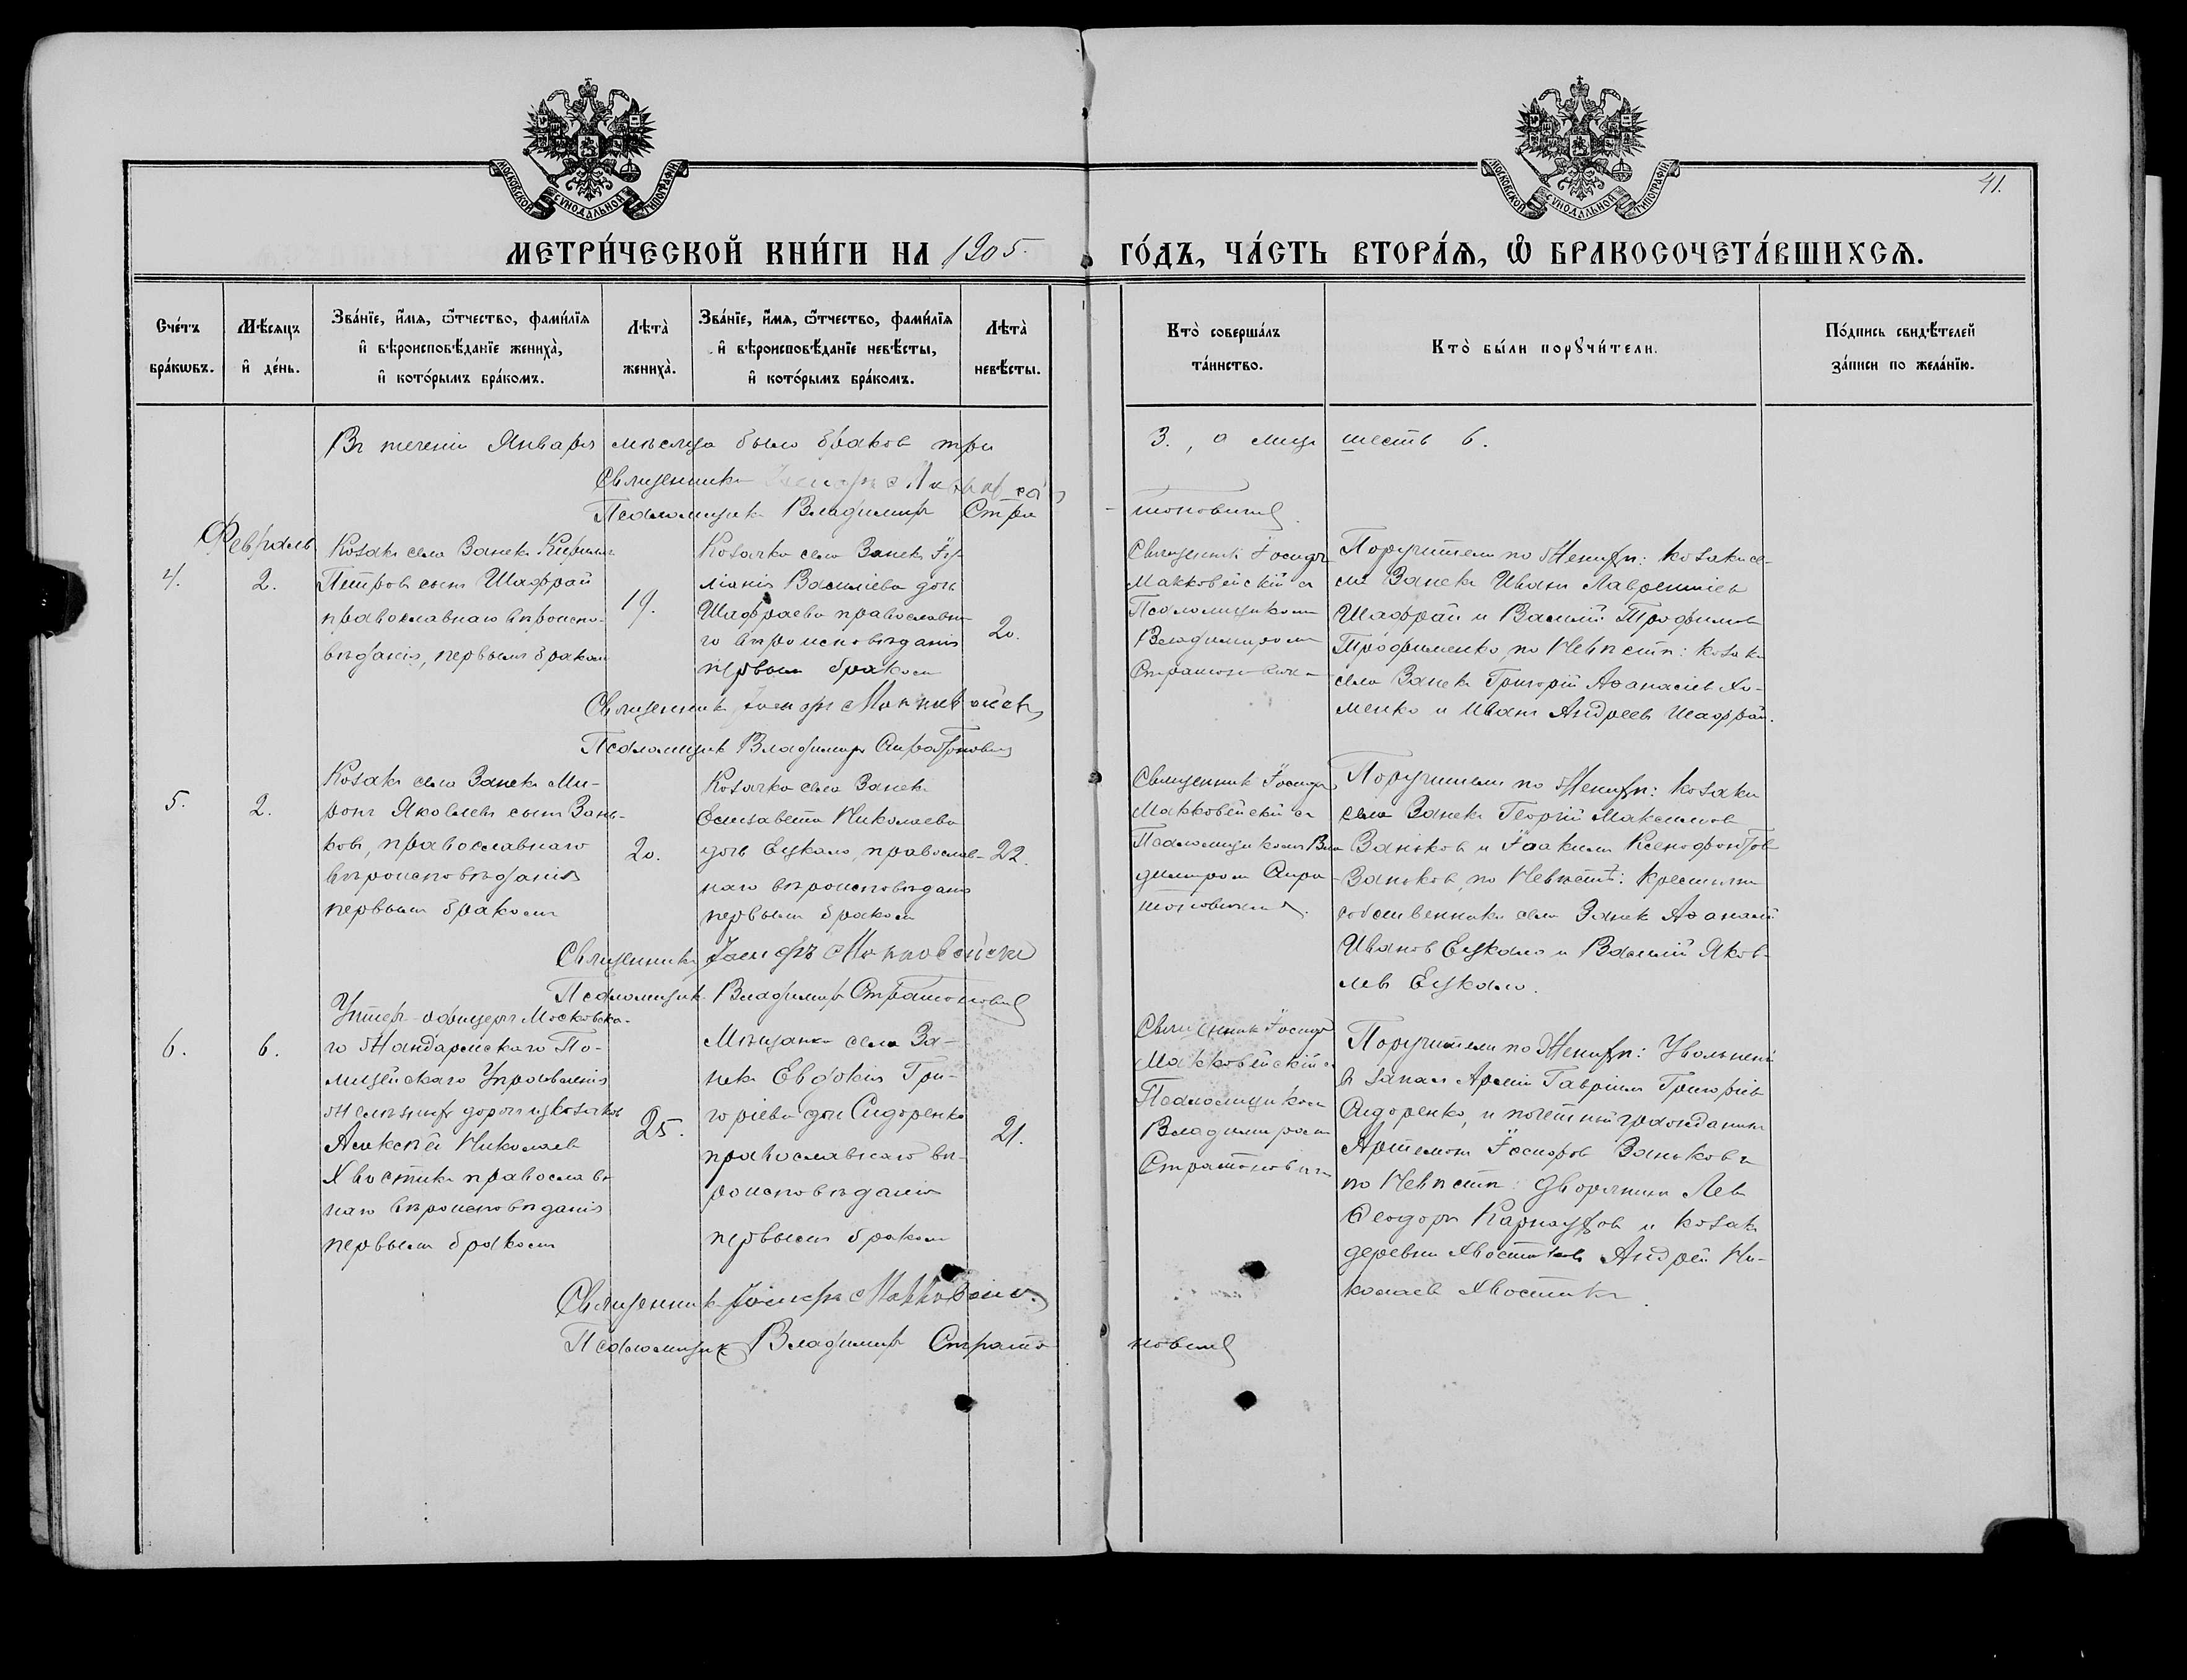 МОСКОВСКОЙ СУНОДАЛЬНОЙ ТИПОГРАФІИ
МОСКОВСКОЙ СУНОДАЛЬНОЙ ТИПОГРАФІИ
41.
МЕТРИ́ЧЕСКОЙ КНИ́ГИ НА 1905. ГО́ДЪ, ЧА́СТЬ ВТОРА́Ѧ, Ѽ БРАКОСОЧЕТА́ВШИХСѦ.
Сче́тъ бра́кѡвъ.
Мѣ́сяцъ и҆ де́нь.
Зва́нїе, и҆́мѧ, ѻ҆́тчество, фами́лїѧ
и҆ вѣроисповѣ́данїе жениха̀,
и҆ кото́рымъ бра́комъ.
Лѣта̀ жениха̀.
Зва́нїе, и҆́мѧ, ѻ҆́тчество, фами́лїѧ
и҆ вѣроисповѣ́данїе невѣ́сты,
и҆ кото́рымъ бра́комъ.
Лѣта̀ невѣ́сты.
Кто̀ соверша́лъ
та́инство.
Кто̀ бы́ли порꙋчи́тели.
По́дпись свидѣ́телей
за́писи по жела́нїю.
Въ теченіи Января мѣсяца было браковъ три 3., а лицъ шесть 6.
Священникъ Іосифъ
Псаломщикъ Владимиръ Стратоновичъ
Февраль
4.
2.
Козакъ села Занекъ
Петровъ сынъ Шафрай
православнаго вѣроиспо-
вѣданія, первымъ бракомъ
19.
Козачка села Занекъ Іу-
ліанія Василіева дочь
Шафраева православна-
го вѣроисповѣданія
первым бракомъ
20.
Священникъ Іосифъ
Маккавейскій съ
Псаломщикомъ
Владимиромъ
Стратоновичем
Поручители по Женихѣ: козаки се-
ла Занекъ Иванъ Лаврентіевъ
Шафрай и Василій Трофимовъ
Трофименко, по Невѣстѣ: козаки
села Занекъ Григорій Аѳанасіевъ Хо-
менко и Иванъ Андреевъ Шафрай.
Священникъ Іосифъ Маккавейскій
Псаломщикъ Владимиръ Стратоновичъ
5.
2.
Козакъ села Занекъ Ми-
ронъ Яковлевъ сынъ Зань-
ковъ, православнаго
вѣроисповѣданія
первымъ бракомъ
20.
Козачка села Занекъ
Елисавета Николаева
дочь Ецкало, православ-
наго вѣроисповѣданія
первымъ бракомъ
22.
Священникъ Іосифъ
Маккавейскій съ
Псаломщикомъ Вла-
димиромъ Стра-
тоновичемъ.
Поручители по Женихѣ: козаки
села Занекъ Георгій Максимовъ
Заньковъ и Іоакимъ Ксенофонтовъ
Заньковъ, по Невѣстѣ: крестьяне
собственники села Занекъ Аѳанасій
Ивановъ Ецкало и Василій Яков-
левъ Ецкало.
Священникъ Іосифъ Маккавейскій
Псаломщикъ Владимиръ Стратоновичъ
6.
6.
Унтеръ-офицеръ Московска-
го Жандармскаго По-
лицейскаго Управленія
желѣзныхъ дорогъ изъ козаковъ
Алексѣй Николаевъ
Хвостикъ православ-
наго вѣроисповѣданія
первымъ бракомъ
25.
Мѣщанка села За-
некъ Евдокія Гри-
горіева дочь Сидоренко
православнаго вѣ-
роисповѣданія
первымъ бракомъ
21.
Священникъ Іосифъ
Маккавейскій съ
Псаломщикомъ
Владимиромъ
Стратоновичемъ
Поручители по Женихѣ: Уволенный
въ запасъ Арміи Гавріилъ Григоріевъ
Сидоренко, и почетный гражданинъ
Артемонъ Іосифовъ Заньковъ
по Невѣстѣ: дворянинъ Левъ
Ѳеодоръ Карнауховъ и козакъ
деревни Хвостиковъ Андрей Ни-
колаевъ Хвостикъ.
Священникъ Іосифъ Маккавейскій
Псаломщикъ Владимиръ Стратоновичъ